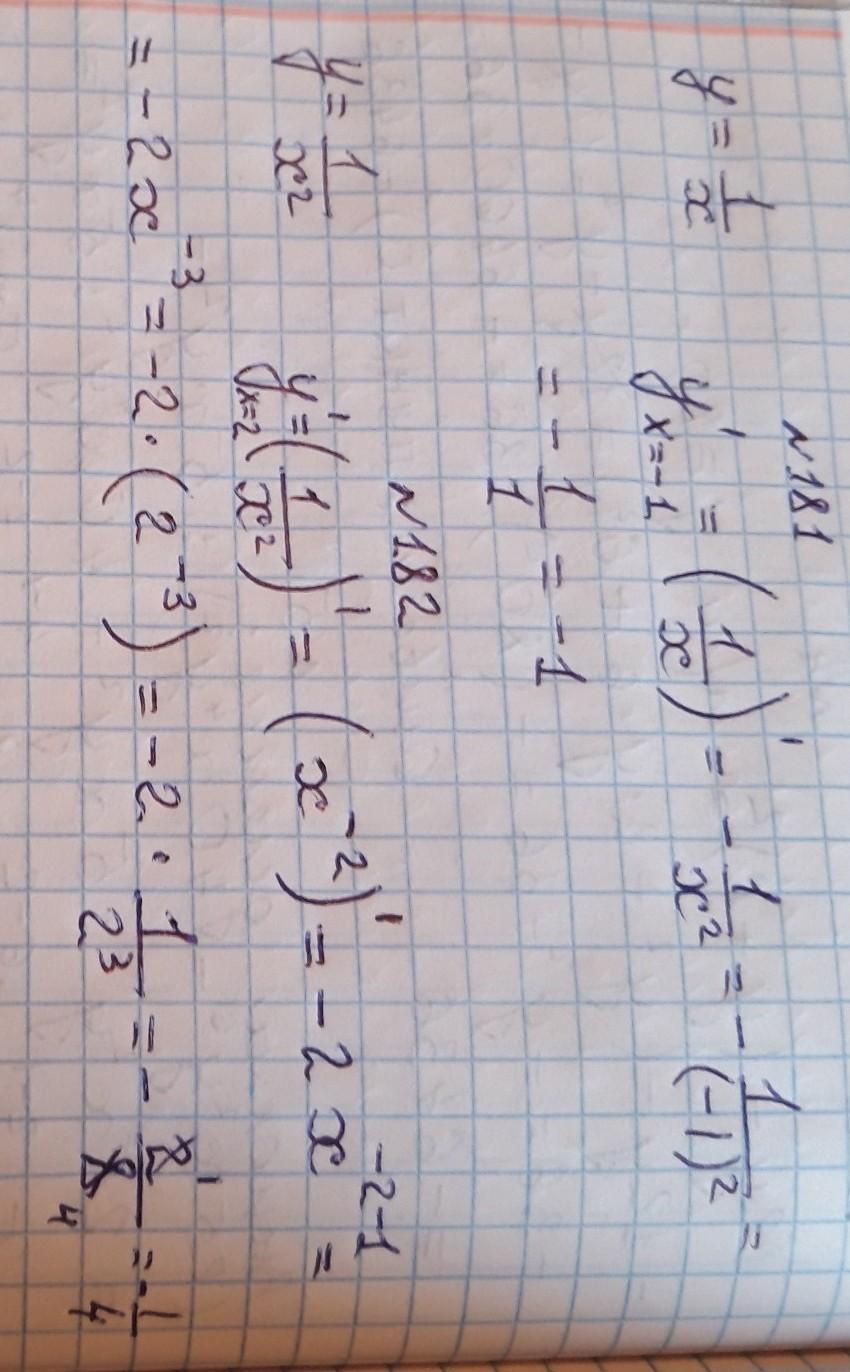 №181
y = 1/x y'ₓ₌₋₁ = (1/x)' = - 1/x² = - 1/(-1)² =
= - 1/1 = -1
№182
y = 1/x² y'ₓ₌₂ = (1/x²)' = (x⁻²)' = -2x⁻²⁻¹ =
= -2x⁻³ = -2·(2⁻³) = -2 · 1/2³ = - 2̸¹/8̸₄ = - 1/4